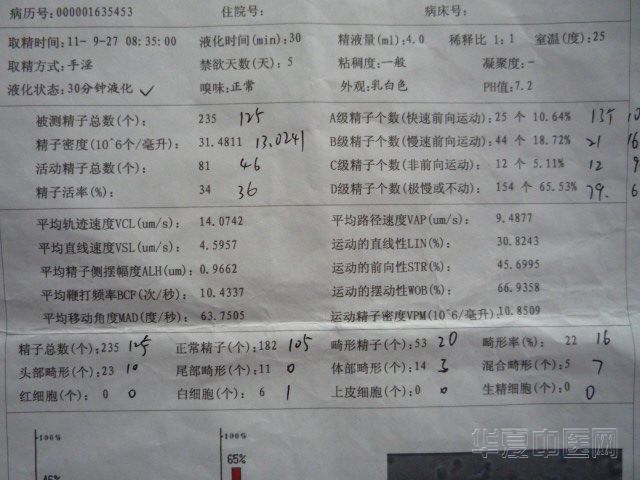 病历号:000001635453 住院号: 病床号:
取精时间:11-9-27 08:35:00 液化时间(min):30 精液量(ml):4.0 稀释比 1:1 室温(度):25
取精方式:手淫 禁欲天数(天):5 粘稠度:一般 凝聚度:-
液化状态:30分钟液化 ✓ 嗅味:正常 外观:乳白色 PH值:7.2
被测精子总数(个): 235 125 A级精子个数(快速前向运动):25 个 10.64%
精子密度(10^6个/毫升): 31.4811 13.0241 B级精子个数(慢速前向运动):44 个 18.72% 21 16
活动精子总数(个): 81 46 C级精子个数(非前向运动): 12 个 5.11% 12 9
精子活率(%): 34 36 D级精子个数(极慢或不动): 154 个 65.53% 79 6
平均轨迹速度VCL(um/s): 14.0742 平均路径速度VAP(um/s): 9.4877
平均直线速度VSL(um/s): 4.5957 运动的直线性LIN(%): 30.8243
平均精子侧摆幅度ALH(um): 0.9662 运动的前向性STR(%): 45.6995
平均鞭打频率BCF(次/秒): 10.4337 运动的摆动性WOB(%): 66.9358
平均移动角度MAD(度/秒): 63.7505 运动精子密度VPM(10^6/毫升):10.8509
精子总数(个):235 125 正常精子(个):182 105 畸形精子(个):53 20 畸形率(%): 22 16
头部畸形(个):23 10 尾部畸形(个):11 0 体部畸形(个):14 3 混合畸形(个):5 7
红细胞(个): 0 0 白细胞(个): 6 1 上皮细胞(个): 0 0 生精细胞(个):0 0
100% 100%
46% 65%
华夏中医网